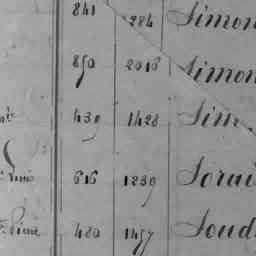 841 284 Simon
850 2016 Simon
439 1428 Sim
616 1239
480 1457 Soud